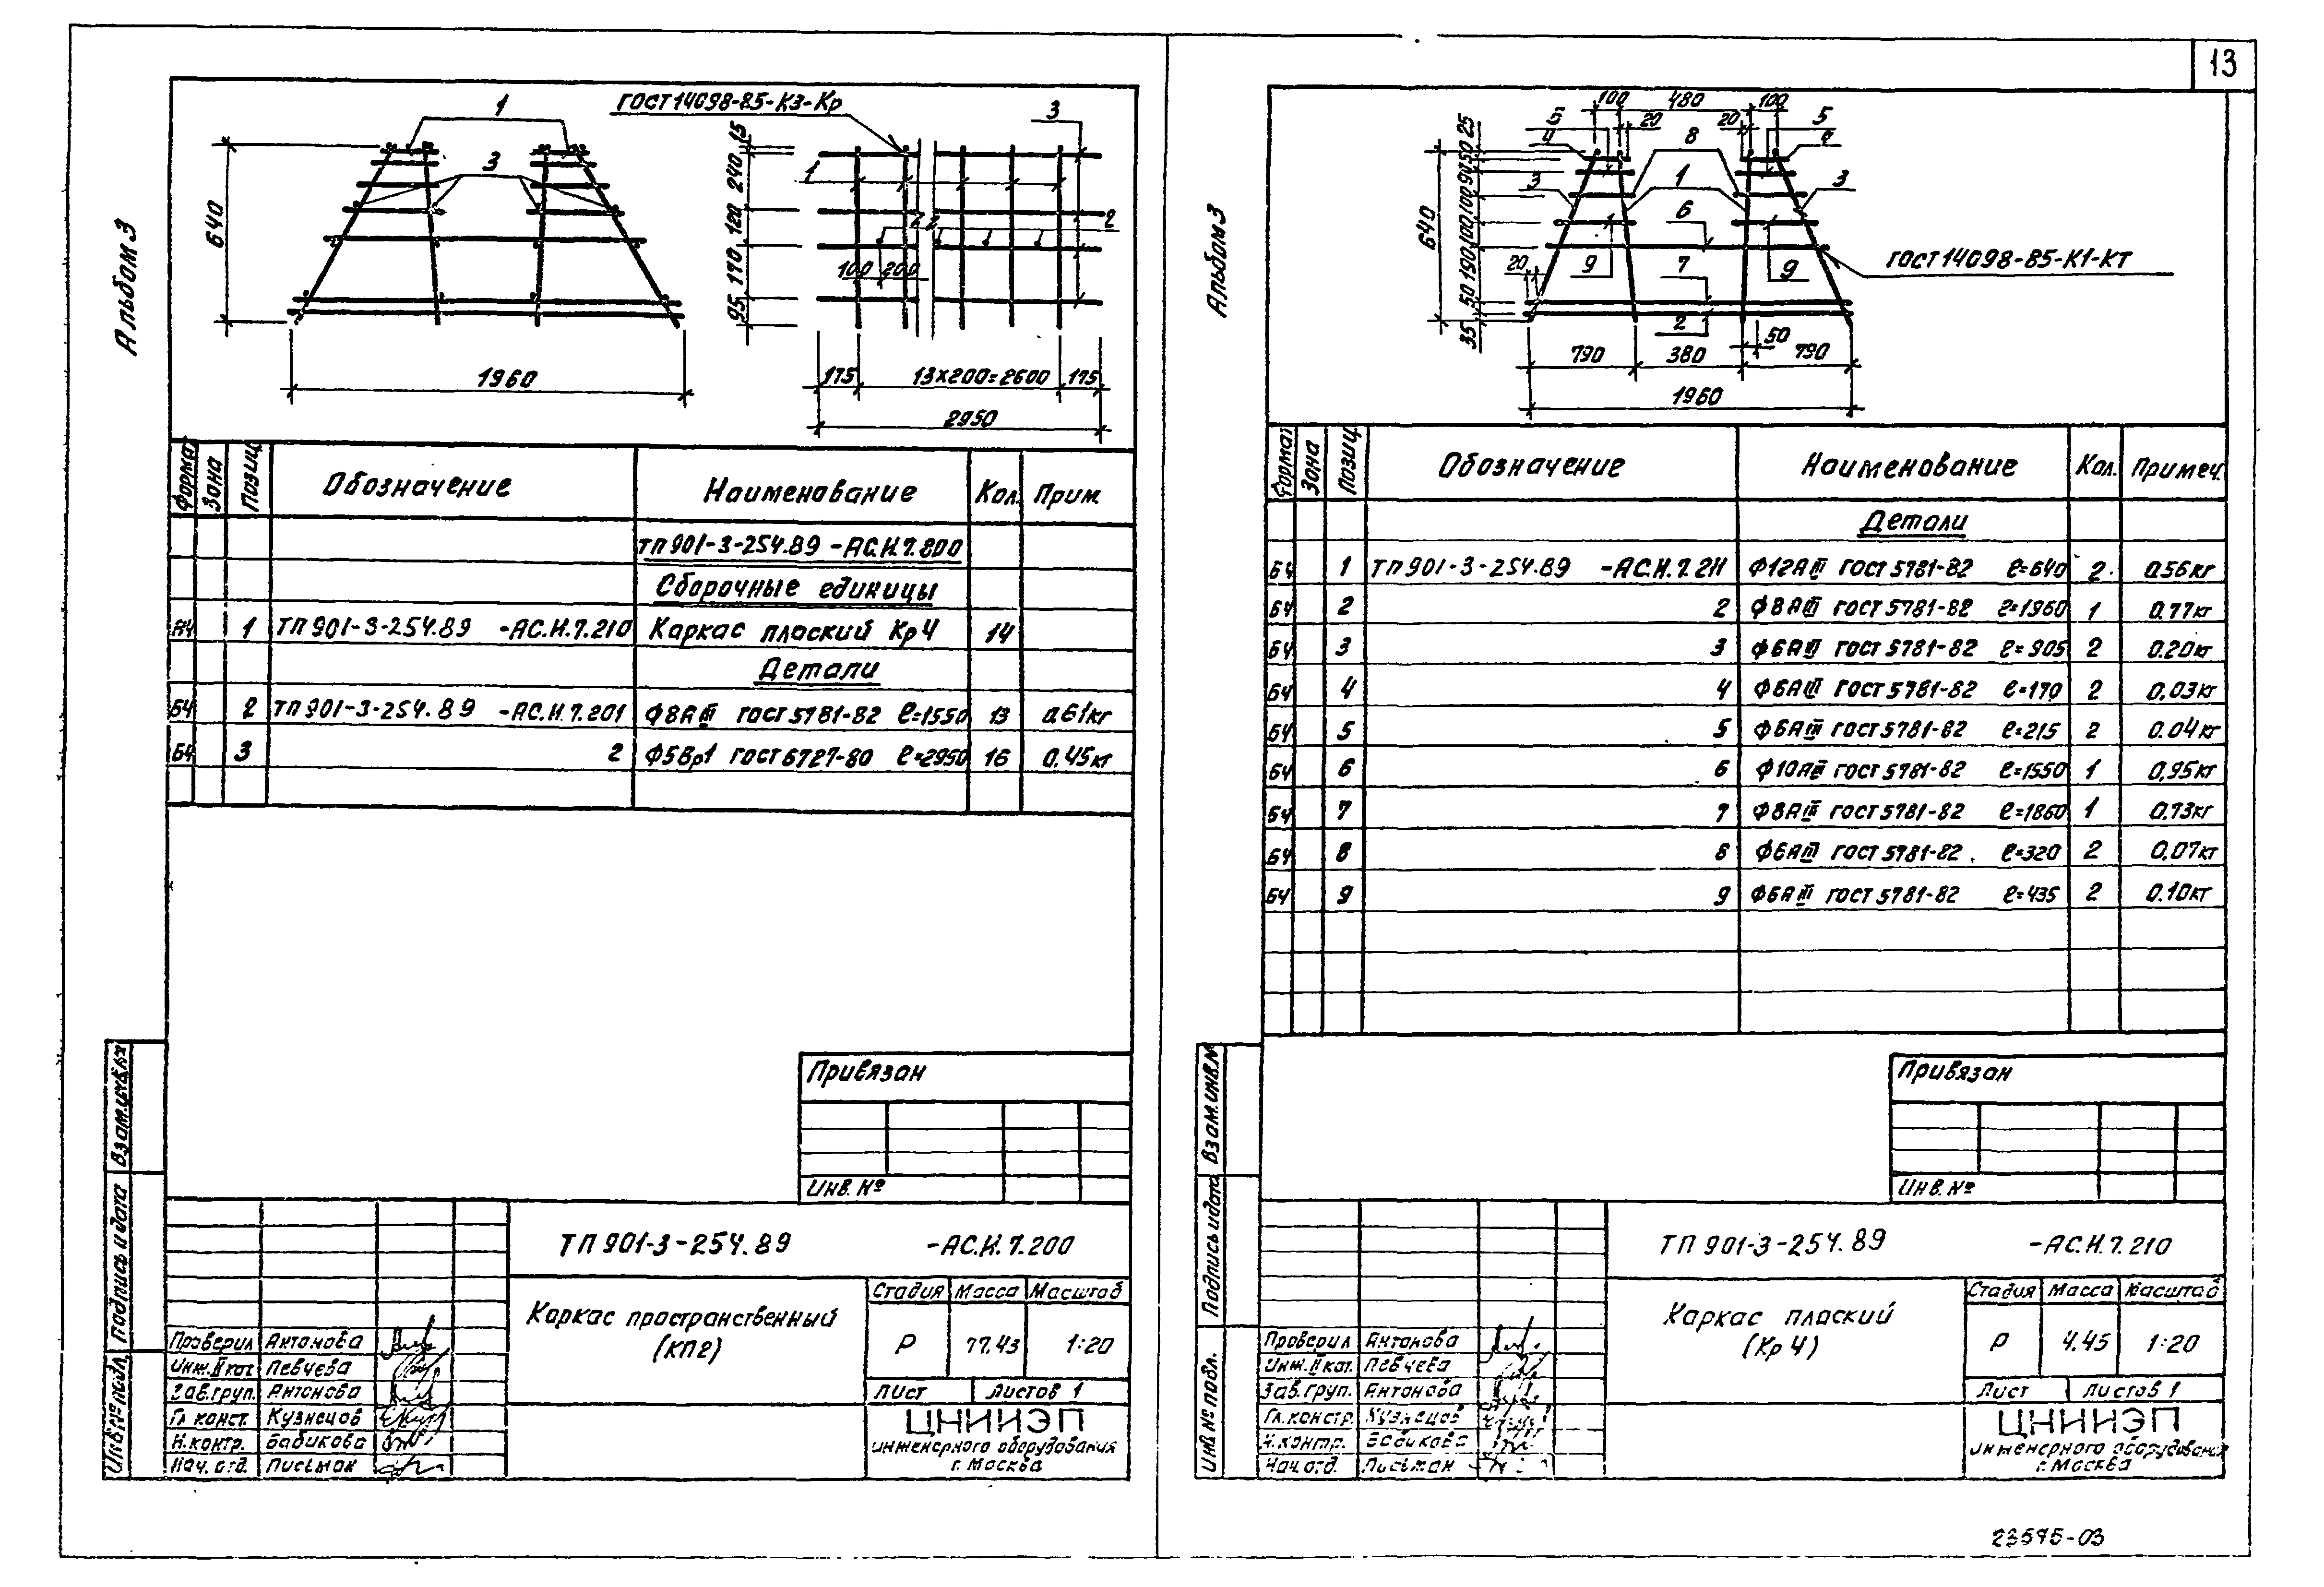 13
Альбом 3
1
ГОСТ 14098-85-К3-Кр
3
3
640
1960
15
240
120
170
95
1
2
2
2
100
200
175
13×200=2600
175
2950
Формат
Зона
Позиц.
Обозначение
Наименование
Кол.
Прим.
ТП 901-3-254.89 -АС.И.7.800
Сборочные единицы
А4 1 ТП 901-3-254.89 -АС.И.7.210 Каркас плоский Кр4 14
Детали
Б4 2 ТП 901-3-254.89 -АС.И.7.201 Ф8АIII ГОСТ 5781-82 ℓ=1550 13 0.61кг
Б4 3 2 Ф5Вр1 ГОСТ 6727-80 ℓ=2950 16 0.45кг
Привязан
Инв. №
Взам.инв.№
Подпись и дата
Инв.№ подл.
ТП 901-3-254.89 -АС.И.7.200
Каркас пространственный
(КП2)
Стадия Масса Масштаб
Р 77.43 1:20
Лист Листов 1
ЦНИИЭП
инженерного оборудования
г. Москва
Проверил Антонова
Инж.II кат. Певчева
Зав.груп. Антонова
Гл. конст. Кузнецов
Н.контр. Бабикова
Нач. отд. Письман
Альбом 3
100 480 100
20 20
5 5
4 4
8
3 1 3
6
9 7 9
20
2
50
25
50
90
100
100
190
50
35
640
ГОСТ 14098-85-К1-КТ
790 380 790
1960
Формат
Зона
Позиц.
Обозначение
Наименование
Кол.
Примеч.
Детали
Б4 1 ТП 901-3-254.89 -АС.И.7.211 Ф12АIII ГОСТ 5781-82 ℓ=640 2 0.56кг
Б4 2 2 Ф8АIII ГОСТ 5781-82 ℓ=1960 1 0.77кг
Б4 3 3 Ф6АIII ГОСТ 5781-82 ℓ=905 2 0.20кг
Б4 4 4 Ф6АIII ГОСТ 5781-82 ℓ=170 2 0.03кг
Б4 5 5 Ф6АIII ГОСТ 5781-82 ℓ=215 2 0.04кг
Б4 6 6 Ф10АIII ГОСТ 5781-82 ℓ=1550 1 0.95кг
Б4 7 7 Ф8АIII ГОСТ 5781-82 ℓ=1860 1 0.73кг
Б4 8 8 Ф6АIII ГОСТ 5781-82 ℓ=320 2 0.07кг
Б4 9 9 Ф6АIII ГОСТ 5781-82 ℓ=435 2 0.10кг
Привязан
Инв. №
Взам.инв.№
Подпись и дата
Инв № подл.
ТП 901-3-254.89 -АС.И.7.210
Каркас плоский
(Кр 4)
Стадия Масса Масштаб
Р 4.45 1:20
Лист Листов 1
ЦНИИЭП
инженерного оборудования
г. Москва
Проверил Антонова
Инж.II кат. Певчева
Зав.груп. Антонова
Гл.констр. Кузнецов
Н.контр. Бабикова
Нач.отд. Письман
23595-03